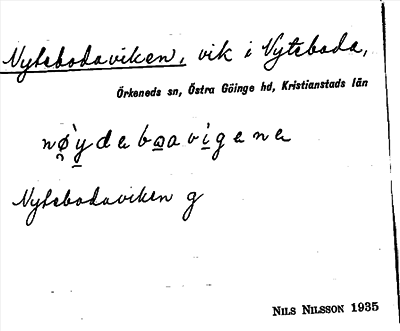 Nytebodaviken, vik i Nyteboda,
Örkeneds sn, Östra Göinge hd, Kristianstads län
nø̀ydebɷavigena
Nytebodaviken g
NILS NILSSON 1935